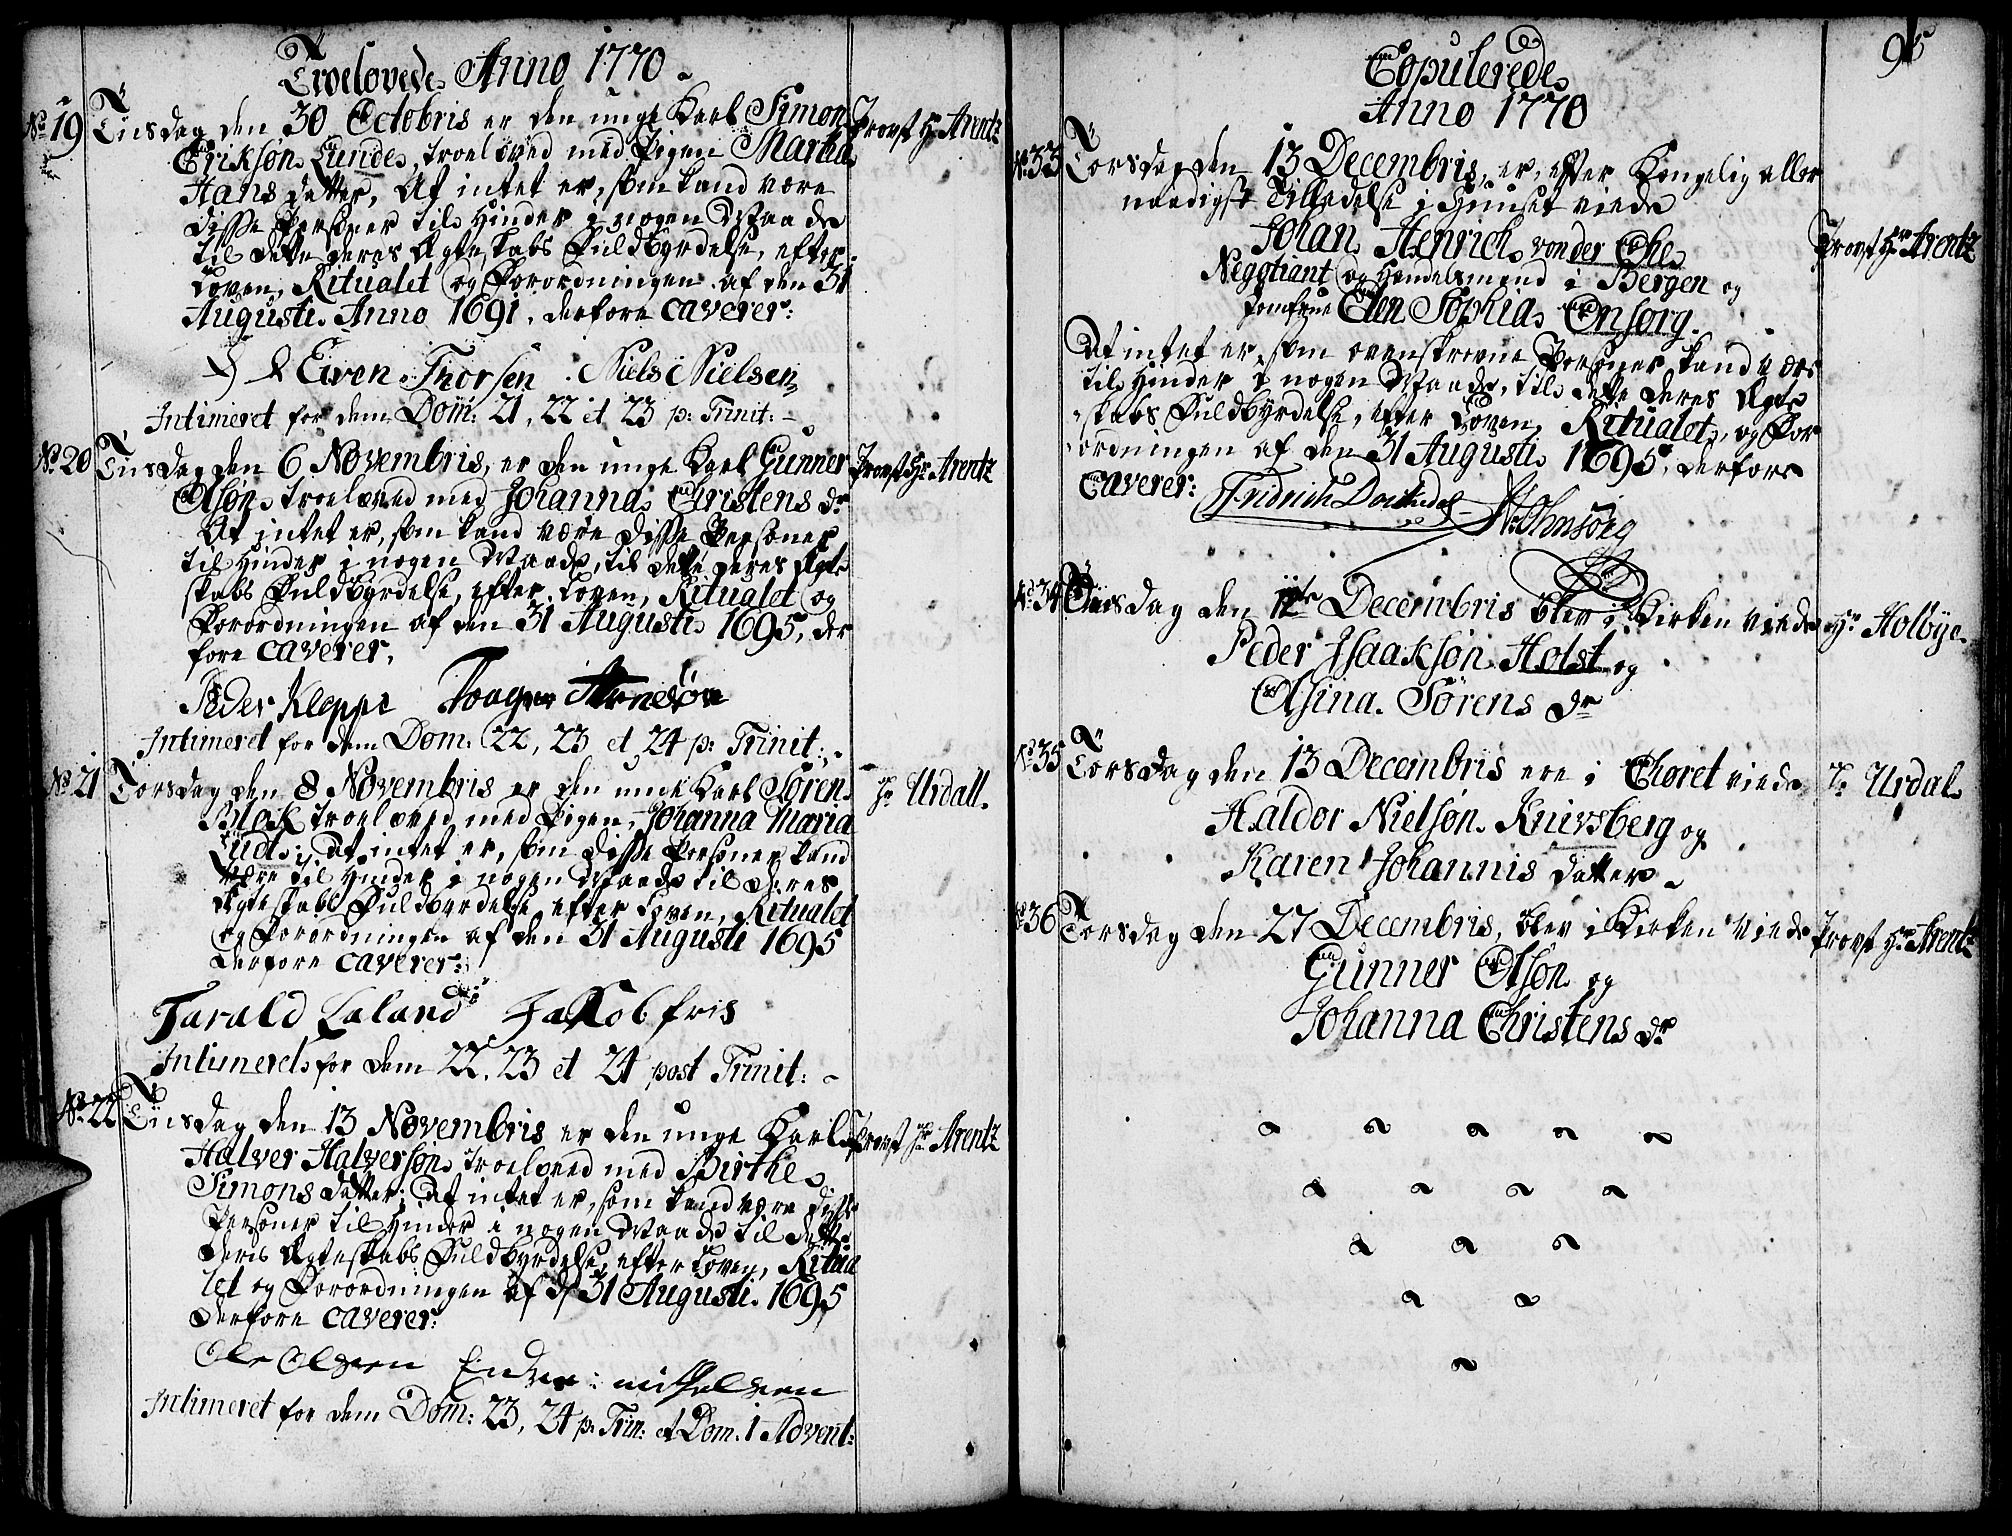 Troelovede Anno 1770
No 19 Tiisdag den 30 Octobris er den unge Karl Simon Provst Hr Arentz
Eriksøn Lunde, troeloved med Pigen Martha
Hans datter, At intet er, som kand være
disse Personer til Hinder i nogen Maade
til dette deres Ægteskabs Fuldbyrdelse, efter
Loven, Ritualet og Forordningen af den 31
Augusti Anno 1691, derfore caverer:
Eiven Thorsen Niels Nielsen
Intimeret for dem Dom: 21, 22 et 23 p: Trinit:
No 20 Tiisdag den 6 Novembris, er den unge Karl Gunner Provst Hr Arentz
Olsøn troeloved med Johanna Christens dr
At intet er, som kand være disse Personer
til Hinder i nogen Maade, til dette deres Ægte
skabs Fuldbyrdelse, efter Loven, Ritualet og
Forordningen af den 31 Augusti 1695, der
fore caverer,
Peder Kleppe Arnesøn
Intimeret for dem Dom: 22, 23 et 24 p: Trinit:
No 21 Torsdag den 8 Novembris er den unge Karl Søren Hr Urdall.
Blok troeloved med Pigen Johanna Maria
Judt. At intet er, som disse Personer kand
være til Hinder i nogen Maade til deres
Ægteskabs Fuldbyrdelse efter Loven, Ritualet
og Forordningen af den 31 Augusti 1695
derfore caverer:
Tarald Laland Jakob friis
Intimeret for dem 22, 23 et 24 post Trinit:
No 22 Tiisdag den 13 Novembris er den unge Karl Provst Hr Arentz
Halver Halversøn troeloved med Birthe
Simons datter; At intet er, som kand være disse
Personer til Hinder i nogen Maade til dette
deris Ægteskabs Fuldbyrdelse, efter Loven, Ritua
let og Forordningen af d: 31 Augusti 1695
derfore caverer:
Ole Olsen Endre: mikkelsen
Intimeret for dem Dom: 23, 24 p: Trin: et Dom. 1 Advent:
95
Copulerede
Anno 1770
No 33 Torsdag den 13 Decembris, er, efter Kongelig aller
naadigst Tilladelse i Huuset viede
Johan Henrich von der Ehe Provst Hr Arentz
Negotiant og Handelsmand i Bergen og
Jomfrue Ellen Sophia Onsorg.
At intet er, som ovenskrevne Personer kand være
til Hinder i nogen Maade, til dette deres Ægte
skabs Fuldbyrdelse, efter Loven, Ritualet, og For
ordningen af den 31 Augusti 1695, derfore
Caverer: Fridrich
No 34 Tiisdag den Decembris blev i Kirken viede Hr Holbye.
Peder Isaaksøn Holst og
Olsina Sørens dr
No 35 Torsdag den 13 Decembris ere i Choret viede Hr Urdal
Haldor Nielsøn Knivsberg og
Karen Johannis datter
No 36 Torsdag den 27 Decembris, blev i Kirken viede Provst Hr Arentz
Gunner Olsøn og
Johanna Christens dr